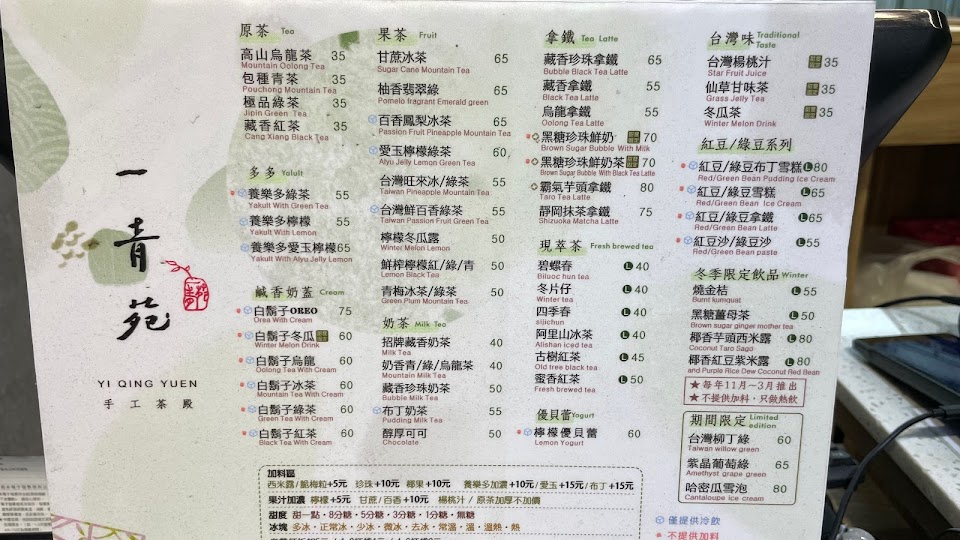 一青苑
YI QING YUEN
手工茶殿
原茶 Tea
高山烏龍茶 35
Mountain Oolong Tea
包種青茶 35
Pouchong Mountain Tea
極品綠茶 35
Jipin Green Tea
藏香紅茶 35
Cang Xiang Black Tea
多多 Yalult
養樂多綠茶 55
Yakult With Green Tea
養樂多檸檬 55
Yakult With Lemon
養樂多愛玉檸檬 65
Yakult With Aiyu Jelly Lemon
鹹香奶蓋 Cream
白鬍子OREO 75
Orea With Cream
白鬍子冬瓜 60
Winter Melon Drink
白鬍子烏龍 60
Oolong Tea With Cream
白鬍子冰茶 60
Mountain Tea With Cream
白鬍子綠茶 60
Green Tea With Cream
白鬍子紅茶 60
Black Tea With Cream
果茶 Fruit
甘蔗冰茶 65
Sugar Cane Mountain Tea
柚香翡翠綠 65
Pomelo fragrant Emerald green
百香鳳梨冰茶 65
Passion Fruit Pineapple Mountain Tea
愛玉檸檬綠茶 60
Aiyu Jelly Lemon Green Tea
台灣旺來冰/綠茶 55
Taiwan Pineapple Mountain Tea
台灣鮮百香綠茶 55
Taiwan Passion Fruit Green Tea
檸檬冬瓜露 50
Winter Melon Lemon
鮮榨檸檬紅/綠/青 50
Lemon Black Tea
青梅冰茶/綠茶 50
Green Plum Mountain Tea
奶茶 Milk Tea
招牌藏香奶茶 40
Milk Tea
奶香青/綠/烏龍茶 40
Mountain Milk Tea
藏香珍珠奶茶 50
Bubble Milk Tea
布丁奶茶 55
Pudding Milk Tea
醇厚可可 50
Chocolate
拿鐵 Tea Latte
藏香珍珠拿鐵 65
Bubble Black Tea Latte
藏香拿鐵 55
Black Tea Latte
烏龍拿鐵 55
Oolong Tea Latte
黑糖珍珠鮮奶 70
Brown Sugar Bubble With Milk
黑糖珍珠鮮奶茶 70
Brown Sugar Bubble With Black Tea Latte
霸氣芋頭拿鐵 80
Taro Tea Latte
靜岡抹茶拿鐵 75
Shizuoka Matcha Latte
現萃茶 Fresh brewed tea
碧螺春 L 40
Biluoc hun tea
冬片仔 L 40
Winter tea
四季春 L 40
sijichun
阿里山冰茶 L 40
Alishan iced tea
古樹紅茶 L 45
Old tree black tea
蜜香紅茶 L 50
Fresh brewed tea
優貝蕾 Yogurt
檸檬優貝蕾 60
Lemon Yogurt
台灣味 Traditional Taste
台灣楊桃汁 35
Star Fruit Juice
仙草甘味茶 35
Grass Jelly Tea
冬瓜茶 35
Winter Melon Drink
紅豆/綠豆系列
紅豆/綠豆布丁雪糕 L 80
Red/Green Bean Pudding Ice Cream
紅豆/綠豆雪糕 L 65
Red/Green Bean Ice Cream
紅豆/綠豆拿鐵 L 65
Red/Green Bean Latte
紅豆沙/綠豆沙 L 55
Red/Green Bean paste
冬季限定飲品 Winter
燒金桔 L 55
Burnt kumquat
黑糖薑母茶 L 50
Brown sugar ginger mother tea
椰香芋頭西米露 L 80
Coconut Taro Sago
椰香紅豆紫米露 L 80
and Purple Rice Dew Coconut Red Bean
★每年11月~3月推出
★不提供加料,只做熱飲
期間限定 Limited edition
台灣柳丁綠 60
Taiwan willow green
紫晶葡萄綠 65
Amethyst grape green
哈密瓜雪泡 80
Cantaloupe ice cream
加料區
西米露/脆梅粒+5元 珍珠+10元 椰果+10元 養樂多加濃+10元/愛玉+15元/布丁+15元
果汁加濃 檸檬+5元 甘蔗/百香+10元 楊桃汁/原茶加厚不加價
甜度 甜一點・8分糖・5分糖・3分糖・1分糖・無糖
冰塊 多冰・正常冰・少冰・微冰・去冰・常溫・溫・溫熱・熱
僅提供冷飲
不提供加料